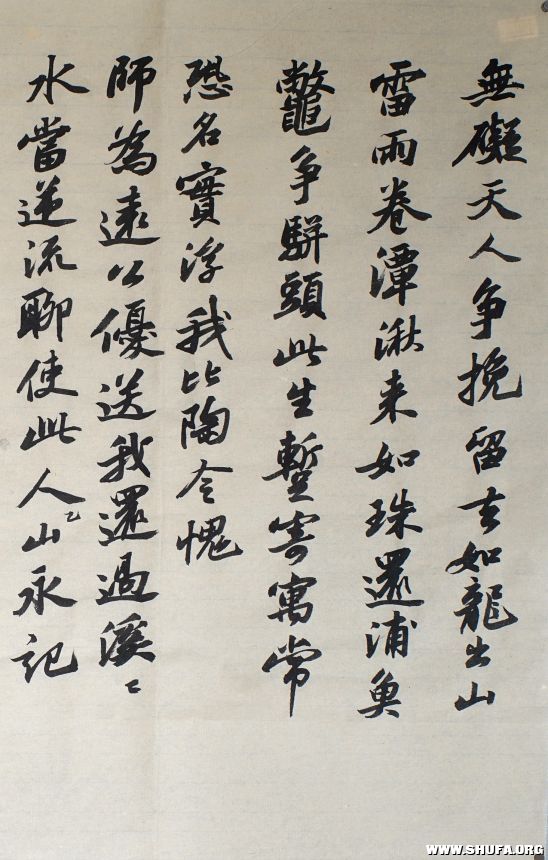 無礙天人争挽留去如龍出山
雷雨卷潭湫来如珠還浦魚
鼈争駢頭此生暫寄寓常
恐名實浮我比陶令愧
師為遠公優送我還過溪〻
水當逆流聊使此人〻山永記
WWW.SHUFA.ORG